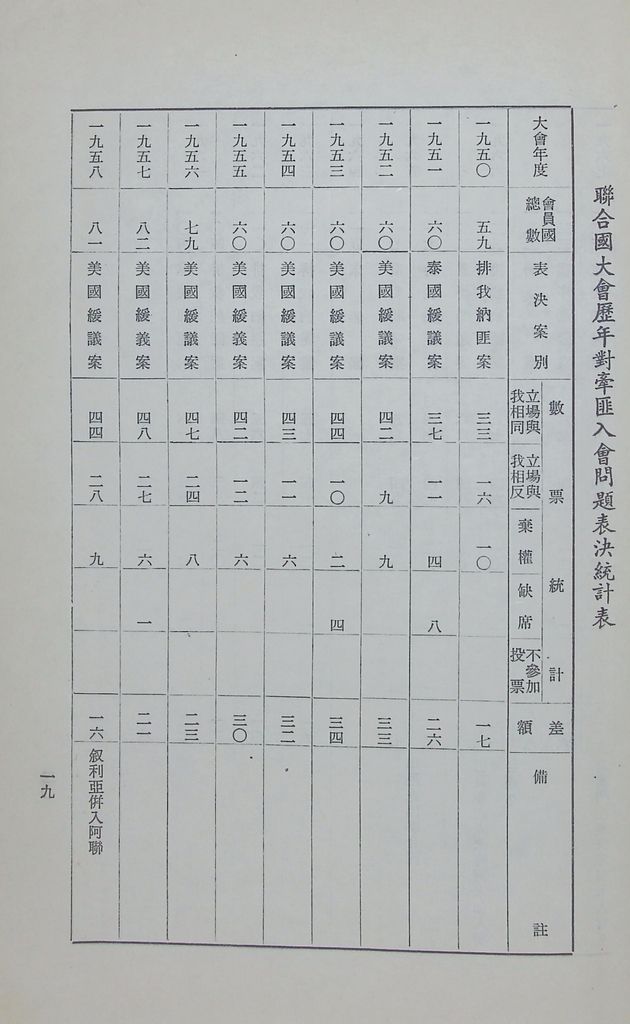 聯合國大會歷年對牽匪入會問題表決統計表
大會年度 會員國總數 表決案別 數票統計 立場與我相同 立場與我相反 棄權 缺席 不參加投票 差額 備註
一九五〇 五九 排我納匪案 三三 一六 一〇 一七
一九五一 六〇 泰國緩議案 三七 一一 四 八 二六
一九五二 六〇 美國緩議案 四二 九 九 三三
一九五三 六〇 美國緩議案 四四 一〇 二 四 三四
一九五四 六〇 美國緩議案 四三 一一 六 三二
一九五五 六〇 美國緩義案 四二 一二 六 三〇
一九五六 七九 美國緩議案 四七 二四 八 二三
一九五七 八二 美國緩義案 四八 二七 六 一 二一
一九五八 八一 美國緩議案 四四 二八 九 一六 叙利亞併入阿聯
一九